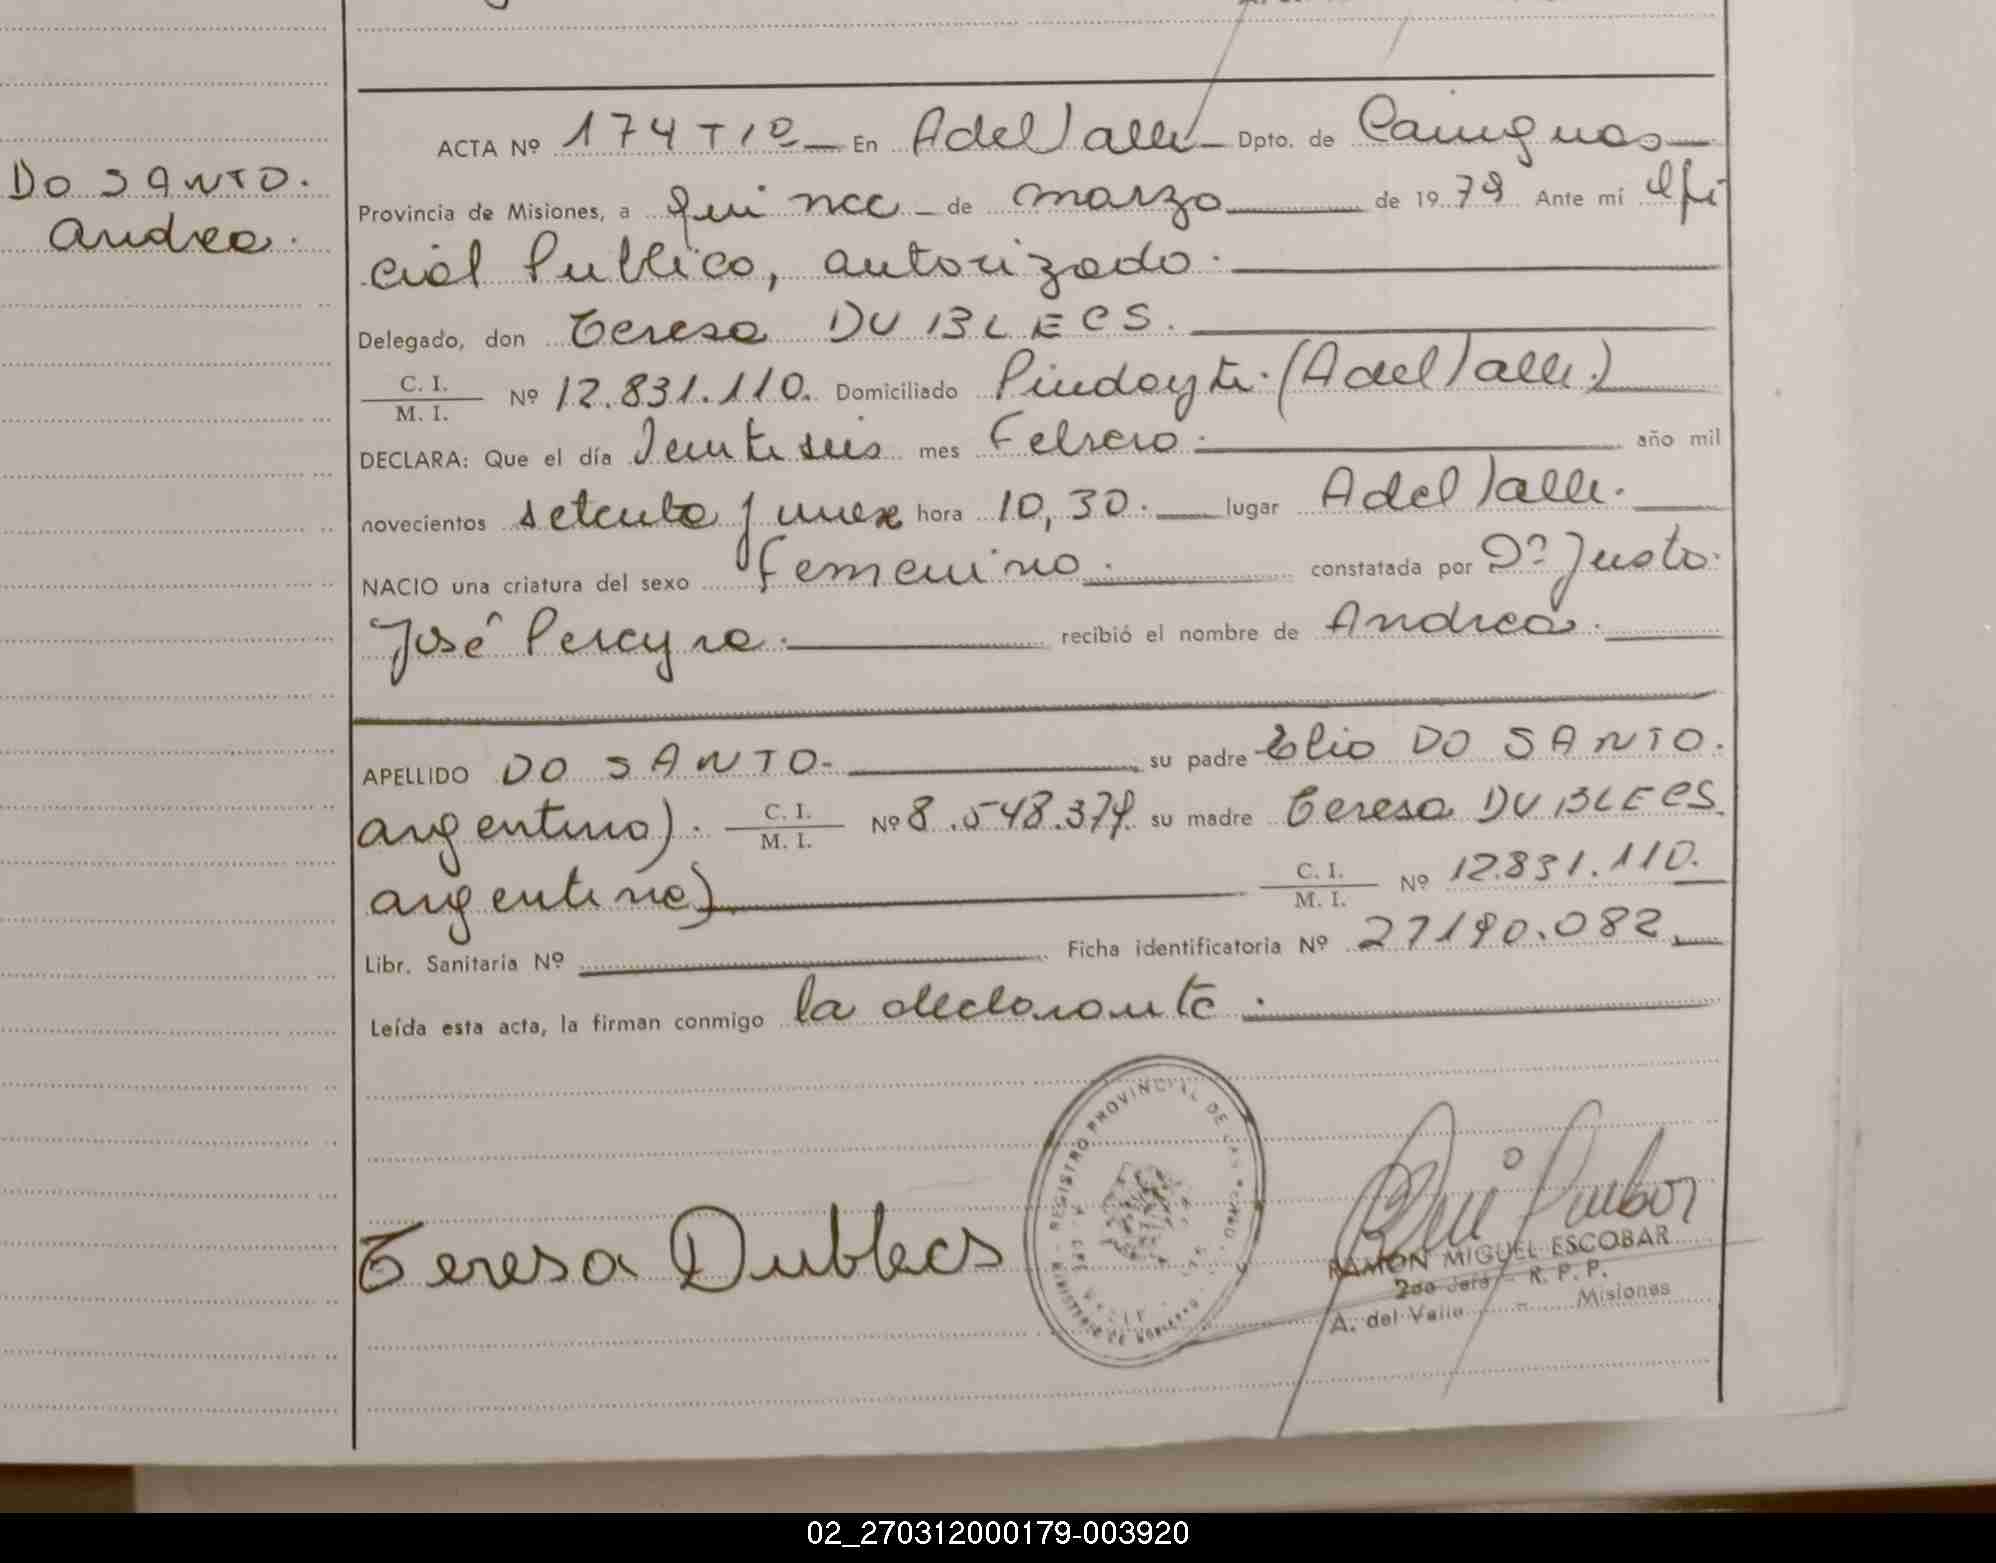 ACTA Nº 174 T 1º En A del Valle Dpto. de Cainguas
DO SANTO.
Andrea.
Provincia de Misiones, a quince de marzo de 1979 Ante mí Ofi
cial Publico, autorizado.
Delegado, don Teresa DUBLECS.
C. I.
M. I.
Nº 12.831.110. Domiciliado Pindayti. (A del Valle.)
DECLARA: Que el día Veintiseis mes Febrero. año mil
novecientos setenta y nueve hora 10,30. lugar A del Valle.
NACIO una criatura del sexo femenino. constatada por Dº Justo
José Pereyra. recibió el nombre de Andrea.
APELLIDO DO SANTO. su padre Elio DO SANTO.
argentino). C. I.
M. I.
Nº 8.548.379. su madre Teresa DUBLECS.
argentina) C. I.
M. I.
Nº 12.831.110.
Libr. Sanitaria Nº Ficha identificatoria Nº 27190.082.
Leída esta acta, la firman conmigo la declarante.
REGISTRO PROVINCIAL DE
MINISTERIO DE GOBIERNO
Teresa Dublecs
RAMON MIGUEL ESCOBAR
2do Jefe - R. P. P.
A. del Valle - Misiones
02_270312000179-003920